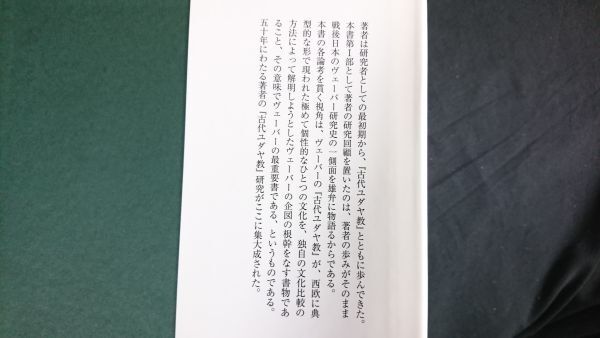 著者は研究者としての最初期から、『古代ユダヤ教』とともに歩んできた。
本書第Ⅰ部として著者の研究回顧を置いたのは、著者の歩みがそのまま
戦後日本のヴェーバー研究史の一側面を雄弁に物語るからである。
本書の各論考を貫く視角は、ヴェーバーの『古代ユダヤ教』が、西欧に典
型的な形で現われた極めて個性的なひとつの文化を、独自の文化比較の
方法によって解明しようとしたヴェーバーの企図の根幹をなす書物であ
ること、その意味でヴェーバーの最重要書である、というものである。
五十年にわたる著者の『古代ユダヤ教』研究がここに集大成された。